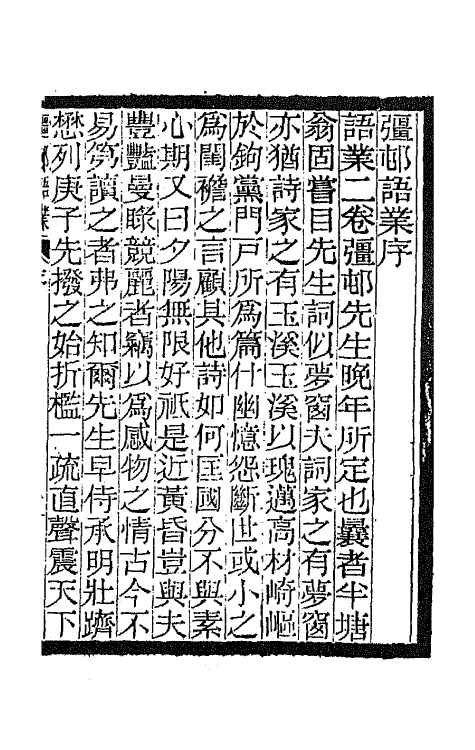 彊邨語業序
語業二卷彊邨先生晚年所定也曩者半塘
翁固嘗目先生詞似夢窗夫詞家之有夢窗
亦猶詩家之有玉溪玉溪以瑰邁高材崎嶇
於鉤黨門戶所爲篇什幽憶怨斷世或小之
爲閨襜之言顧其他詩如何匡國分不與素
心期又曰夕陽無限好祇是近黃昏豈與夫
豐豔曼睩競麗者竊以爲感物之情古今不
易第讀之者弗之知爾先生早侍承明壯躋
懋列庚子先撥之始折檻一疏直聲震天下
彊邨語業 序